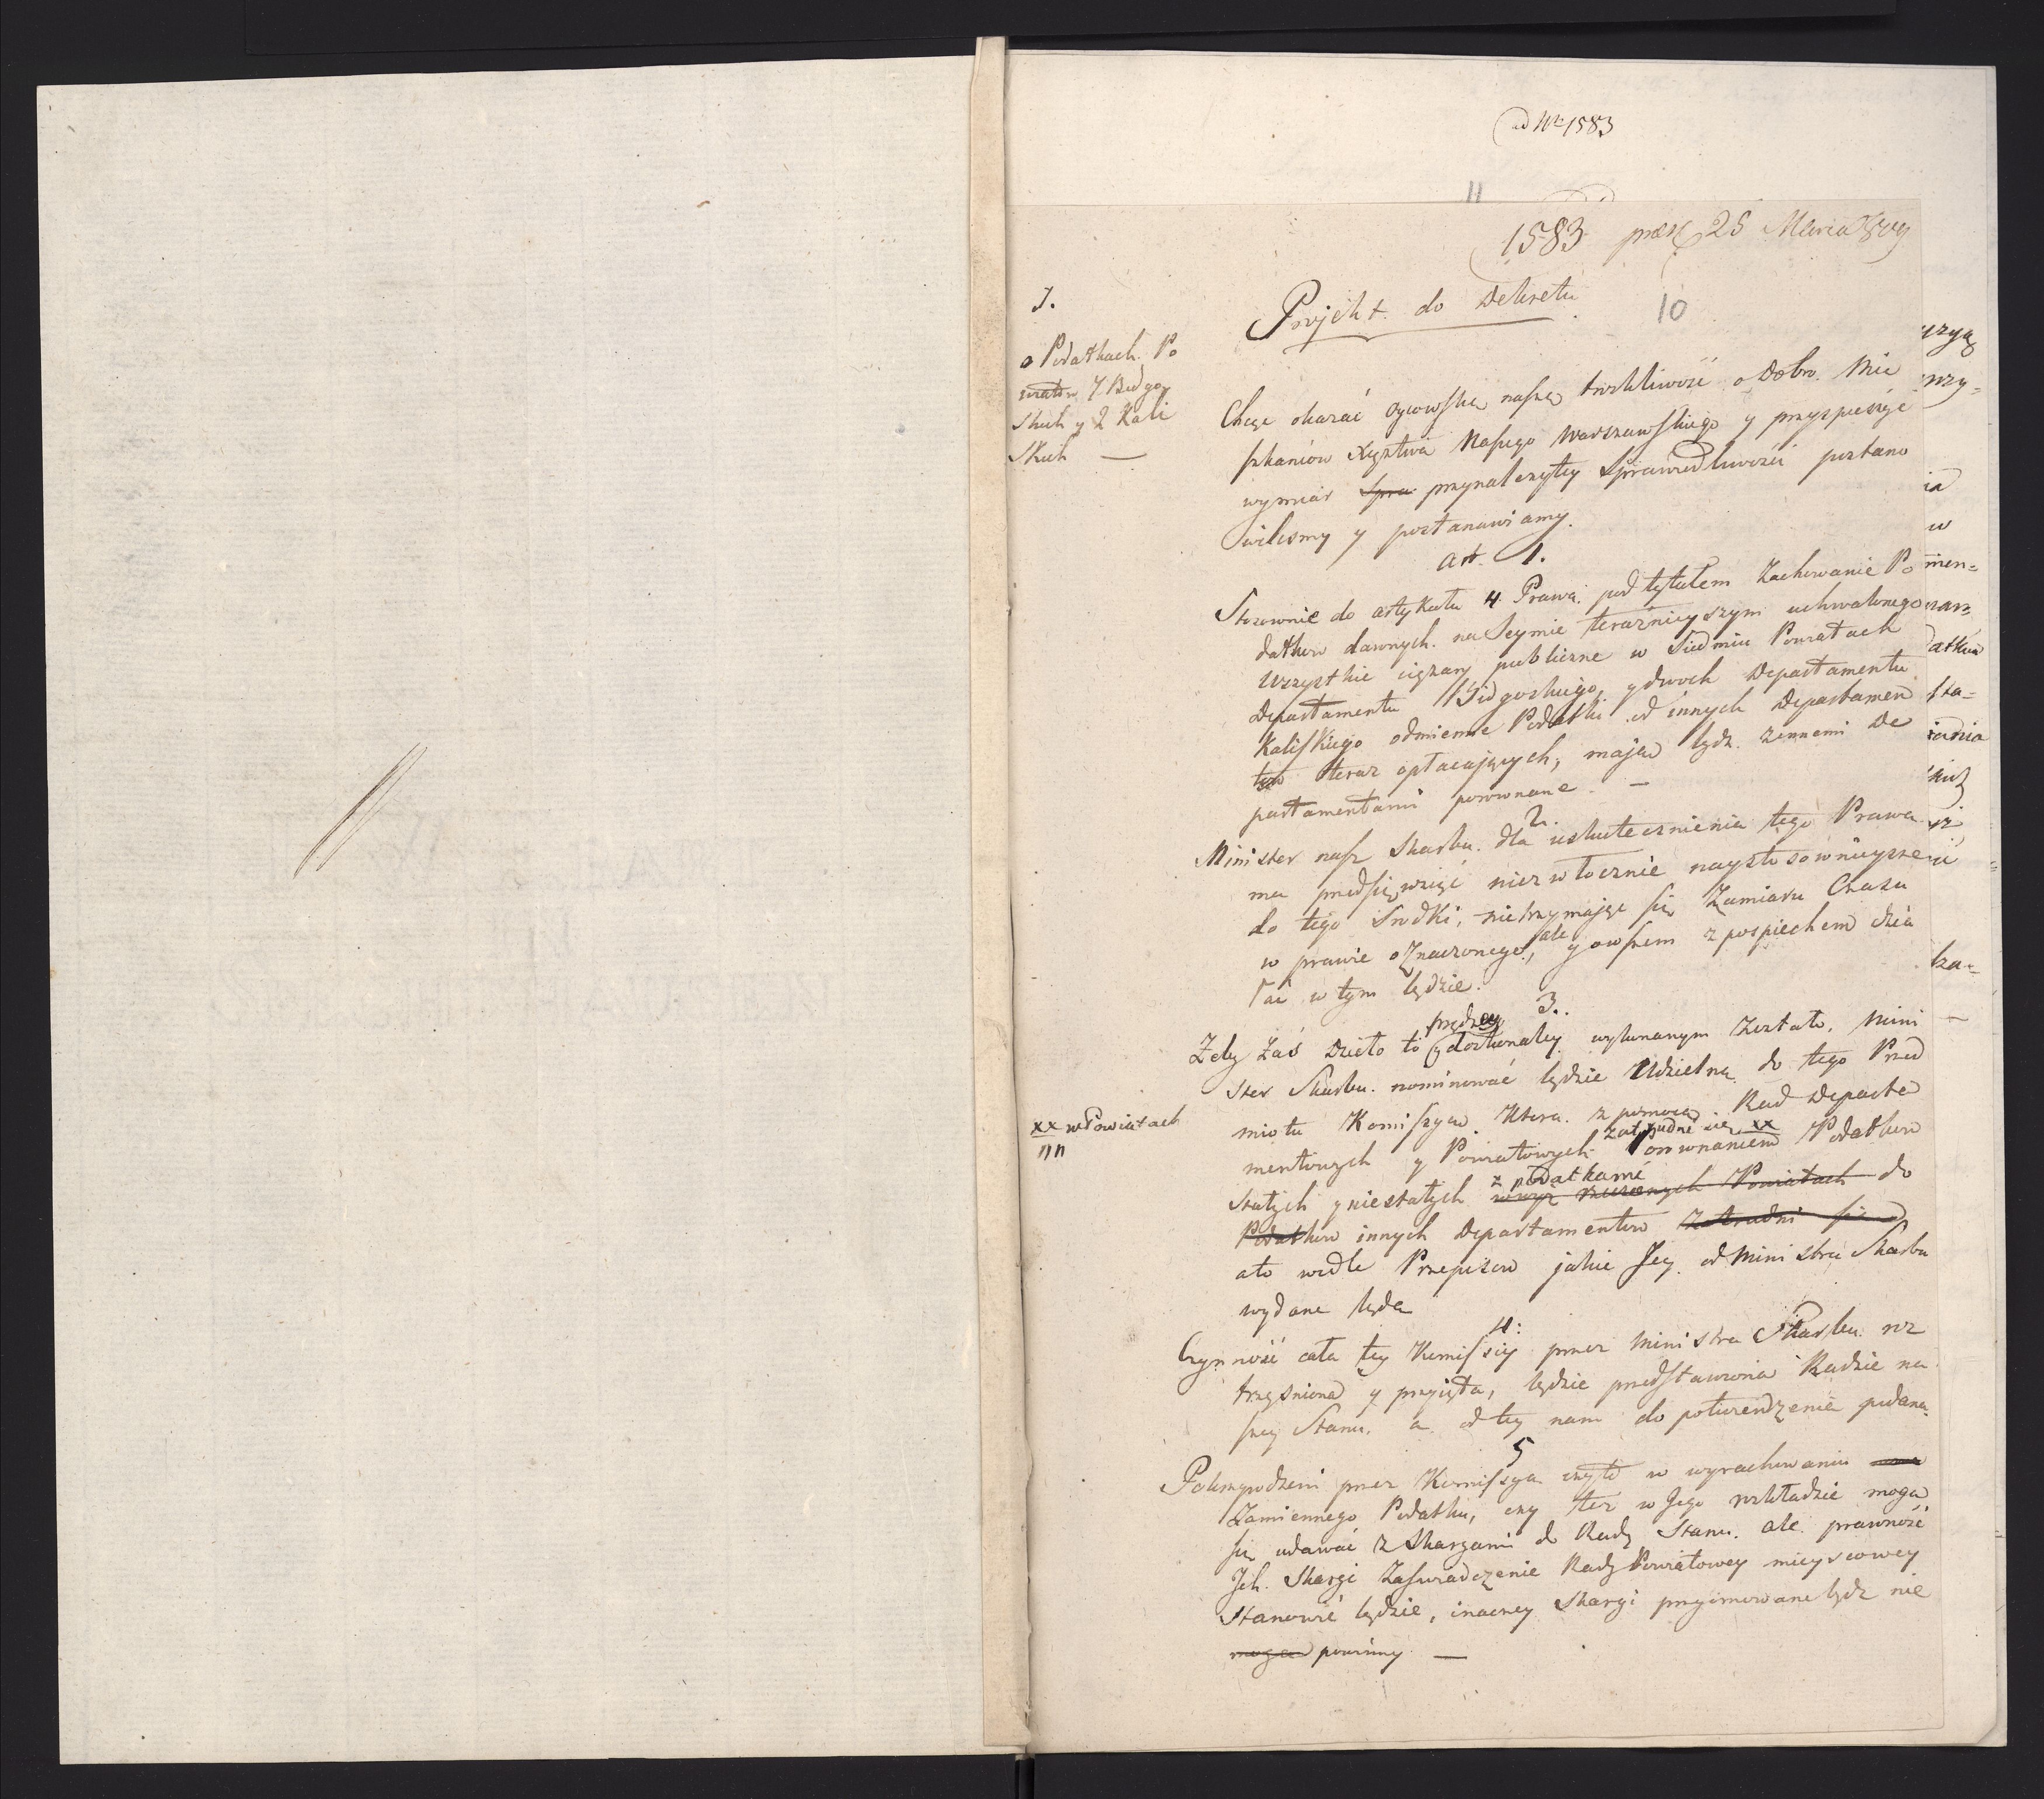 ad Nr 1583
11
1583 pres 25 Marca 1809
10
1.
o Podatkach Po
wiatów 7 Bidgo
skich y 2 Kali
skich —
Projekt do Dekretu
Chcąc okazać oycowską naszę troskliwość o Dobro Mie
szkańców Xięztwa Naszego Warszawskiego y przyspieszyć
wymiar Spra przynależytey Sprawiedliwości postano
wilismy y postanawiamy.
Art. 1.
Stosownie do artykułu 4. Prawa pod tytułem Zachowanie Po
datkow dawnych na Seymie teraźnieyszym uchwalonego
wszystkie ciężary publiczne w Siedmiu Powiatach
Departamentu Bidgoskiego y dwoch Departamentu
Kaliskiego odmienne Podatki od innych Departamen
tow teraz opłacaiących, maią bydz z innemi De
partamentami porownane. —
2.
Minister nasz Skarbu dla uskutecznienia tego Prawa
ma przedsięwziąć niezwłocznie naystosownieysze
do tego Srodki, nietrzymaiąc się Zamiaru Czasu
w prawie oznaczonego, ale y owszem z pospiechem dzia
łać w tym będzie.
3.
Zeby zaś Dzieło to prędzey y doskonaley wykonanym zostało, Mini
ster Skarbu nominować będzie Udzielną do tego Przed
miotu Komissyą Która z pomocą Rad Departa
mentowych y Powiatowych zatrudni się xx Porownaniem Podatkow
xx w Powiatach
nn
Stałych y niestałych z podatkami wwyz rzeczonych Powiatach do
Podatkow innych Departamentow Zatrudni się
a to wedle Przepisow jakie Jey od Ministra Skarbu
wydane będą
4:
Czynność cała tey Komissyi przez Ministra Skarbu roz
trząsniona y przyięta, będzie przedstawiona Radzie na
szey Stanu, a od tey nam do potwierdzenia podana.
5
Pokrzywdzeni przez Komissyą czyto w wyrachowaniu
Zamiennego Podatku, czy tez w Jego rozkładzie mogą
się udawać z Skargami do Rady Stanu. ale prawność
Jch Skargi Zaswiadczenie Rady Powiatowey mieyscowey
Stanowić będzie, inaczey Skargi przyimowane bydz nie
mogą powinny —